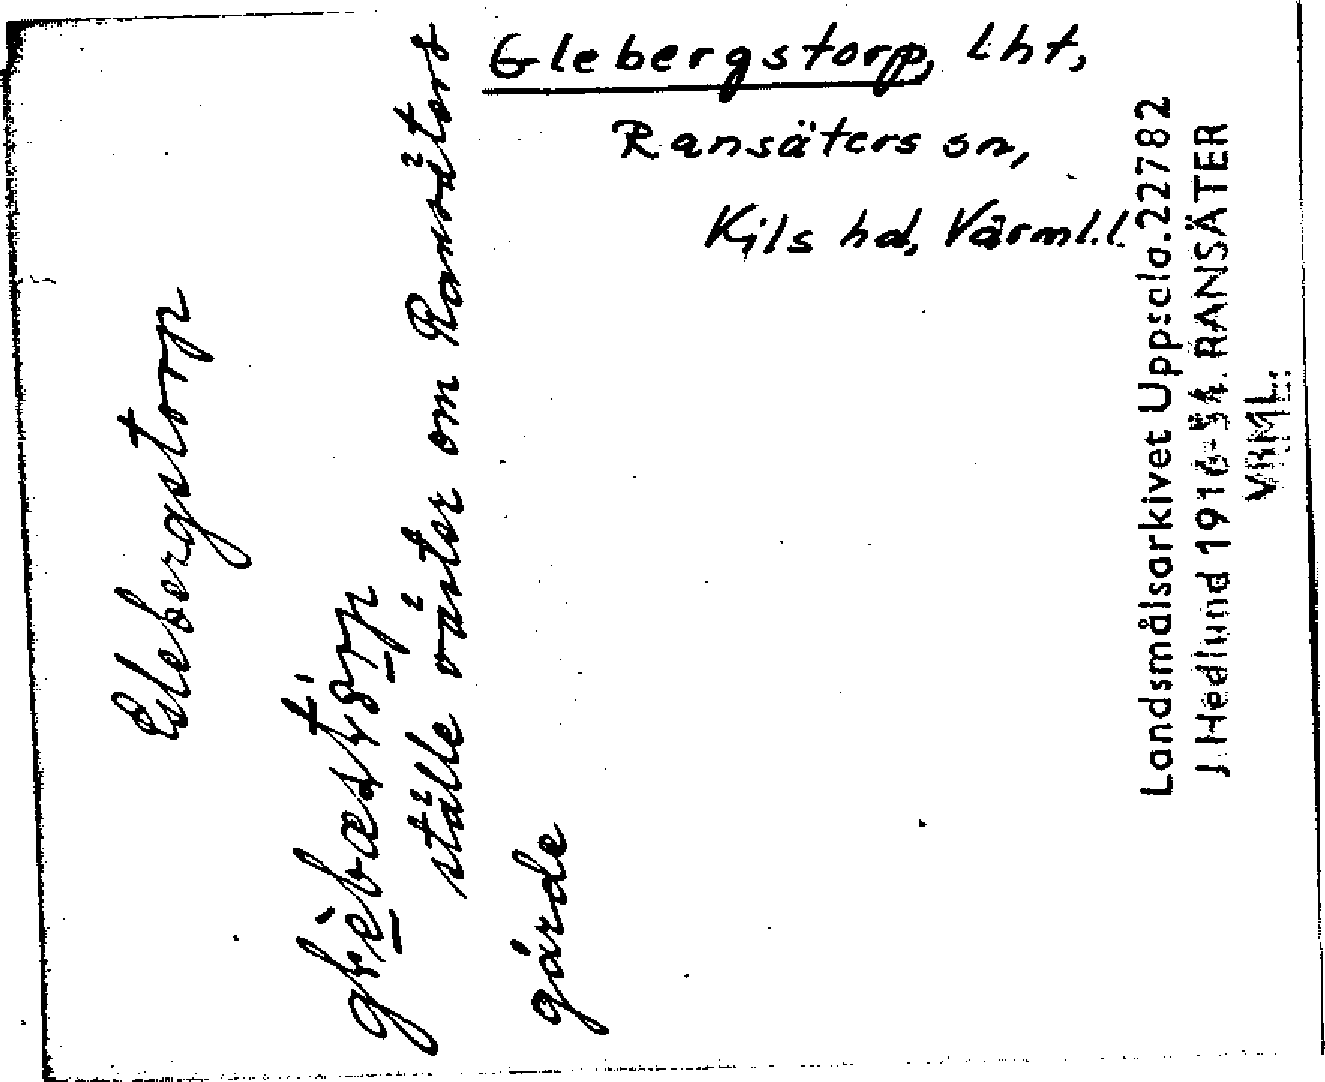 Glebergstorp, lht,
Ransäters sn,
Kils hd, Värml.l.
Glebergstorp
ställe väster om Ransäters
gärde
Landsmålsarkivet Uppsala.22782
J. Hedlund 1916-34. RANSÄTER
VRML.